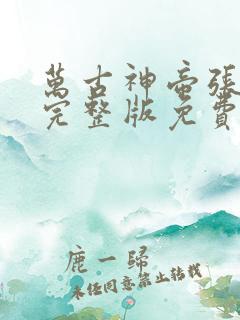 萬古神帝張
完整版免費
鹿一歸
未经同意禁止转载